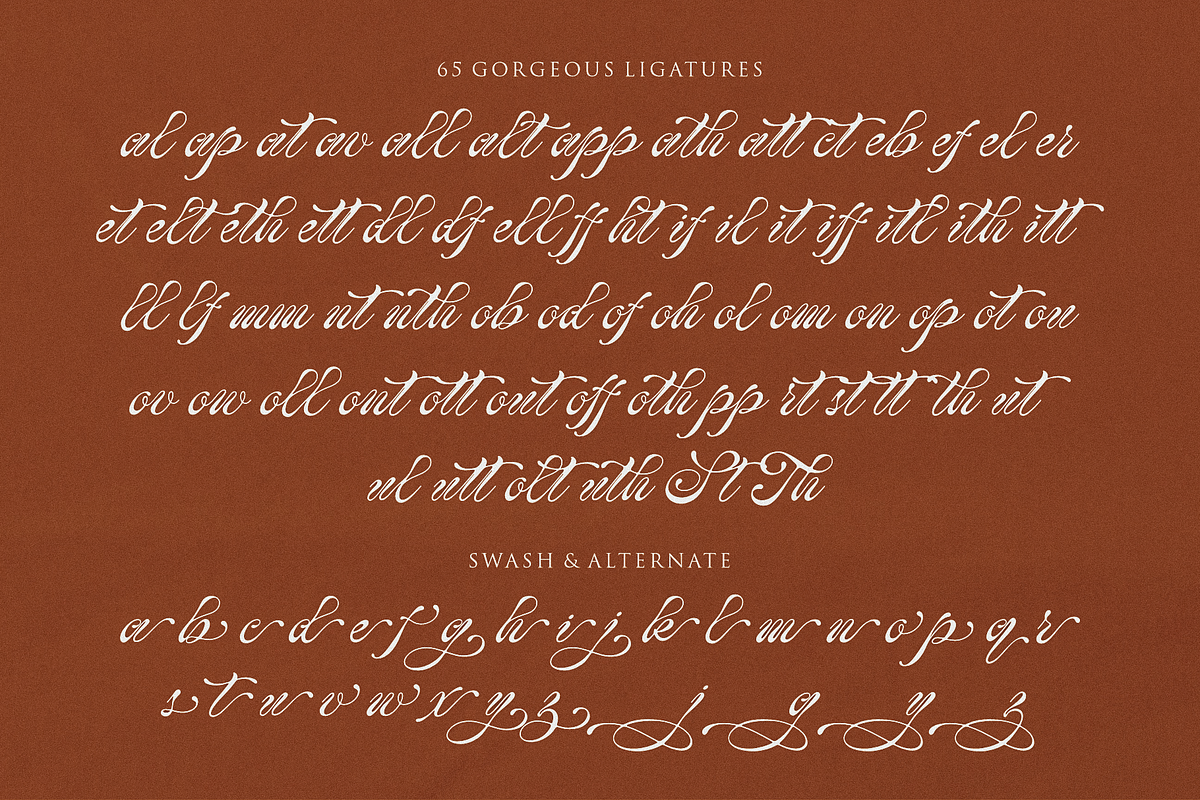 65 GORGEOUS LIGATURES
al ap at av all alt app ath att ct eb ef el er
et elt eth ett dll df ell ff ht if il it iff itl ith itt
ll lf mm nt nth ob od of oh ol om on op ot ou
ov ow oll ont ott out off oth pp rt st tt th ut
ul utt olt uth St Th
SWASH & ALTERNATE
a b c d e f g h i j k l m n o p q r
s t u v w x y z j g y z